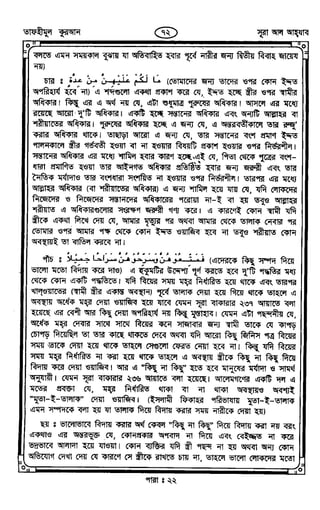 তাফহীমুল কুরআন
৭২
সূরা আল আহযাব
বলতে এমন সময়কাল বুঝায় যা অতিবাহিত হবার পূর্বে নারীর জন্য দ্বিতীয় বিবাহ জায়েয
নয়)
চার : مَا لَكُمْ عَلَيْهِنَّ مِنْ عِدَّةٍ (তোমাদের জন্য তাদের ওপর কোন ইদ্দত
অপরিহার্য হবে না) এ শব্দগুলো একথা প্রকাশ করে যে, ইদ্দত হচ্ছে স্ত্রীর ওপর স্বামীর
অধিকার। কিন্তু এর এ অর্থ নয় যে, এটা শুধুমাত্র পুরুষের অধিকার। আসলে এর মধ্যে
রয়েছে আরো দু'টি অধিকার। একটি হচ্ছে সন্তানের অধিকার এবং অন্যটি আল্লাহর বা
শরীয়াতের অধিকার। পুরুষের অধিকার হচ্ছে এ জন্য যে, এ অন্তরবর্তীকালে তার রুজু'
করার অধিকার থাকে। তাছাড়া আরো এ জন্য যে, তার সন্তানের বংশ প্রমাণ ইদ্দত
পালনকালে স্ত্রীর গর্ভবতী হওয়া বা না হওয়ার বিষয়টি প্রকাশ হওয়ার ওপর নির্ভরশীল।
সন্তানের অধিকার এর মধ্যে শামিল হবার কারণ হচ্ছে এই যে, পিতা থেকে পুত্রের বংশ-
ধারা প্রমাণিত হওয়া তার আইনগত অধিকার প্রতিষ্ঠিত হবার জন্য জরুরী এবং তার
নৈতিক মর্যাদাও তার বংশধারা সংশয়িত না হওয়ার ওপর নির্ভরশীল। তারপর এর মধ্যে
আল্লাহর অধিকার (বা শরীয়াতের অধিকার) এ জন্য শামিল হয়ে যায় যে, যদি লোকদের
নিজেদের ও নিজেদের সন্তানদের অধিকারের পরোয়া না-ই বা হয় তবুও আল্লাহর
শরীয়াত এ অধিকারগুলোর সংরক্ষণ জরুরী গণ্য করে। এ কারণেই কোন স্বামী যদি
স্ত্রীকে একথা লিখে দেয় যে, আমার মৃত্যুর পর অথবা আমার থেকে তালাক নেবার পর
তোমার ওপর আমার পক্ষ থেকে কোন ইদ্দত ওয়াজিব হবে না তবুও শরীয়াত কোন
অবস্থায়ই তা বাতিল করবে না।
পাঁচ : فَمَتِّعُوهُنَّ وَسَرِّحُوهُنَّ سَرَاحًا جَمِيلًا (এদেরকে কিছু সম্পদ দিয়ে
ভালো মতো বিদায় করে দাও) এ হুকুমটির উদ্দেশ্য পূর্ণ করতে হবে দু'টি পদ্ধতির মধ্য
থেকে কোন একটি পদ্ধতিতে। যদি বিয়ের সময় মহর নির্ধারিত হয়ে থাকে এবং তারপর
খালওয়াতের (স্বামী স্ত্রীর একান্ত অবস্থান) পূর্বে তালাক দেয়া হয়ে গিয়ে থাকে তাহলে এ
অবস্থায় অর্ধেক মহর দেয়া ওয়াজিব হয়ে যাবে যেমন সূরা বাকারার ২৩৭ আয়াতে বলা
হয়েছে এর বেশী আর কিছু দেয়া অপরিহার্য নয় কিন্তু মুস্তাহাব। যেমন এটা পছন্দনীয় যে,
অর্ধেক মহর দেবার সাথে সাথে বিয়ের কনে সাজাবার জন্য স্বামী তাকে যে কাপড়
চোপড় দিয়েছিল তা তার কাছে থাকতে দেবে অথবা যদি আরো কিছু জিনিস পত্র বিয়ের
সময় তাকে দেয়া হয়ে থাকে তাহলে সেগুলো ফেরত নেয়া হবে না। কিন্তু যদি বিয়ের
সময় মহর নির্ধারিত না করা হয়ে থাকে তাহলে এ অবস্থায় স্ত্রীকে কিছু না কিছু দিয়ে
বিদায় করে দেয়া ওয়াজিব। আর এ "কিছু না কিছু" হতে হবে মানুষের মর্যাদা ও সামর্থ
অনুযায়ী। যেমন সূরা বাকারার ২৩৬ আয়াতে বলা হয়েছে। আলেমগণের একটি দল এ
মতের প্রবক্তা যে, মহর নির্ধারিত থাকা বা না থাকা অবস্থায়ও অবশ্যই
"মুতা-ই-তালাক" দেয়া ওয়াজিব। (ইসলামী ফিকাহর পরিভাষায় মুতা-ই-তালাক
এমন সম্পদকে বলা হয় যা তালাক দিয়ে বিদায় করার সময় নারীকে দেয়া হয়)
ছয় : ভালোভাবে বিদায় করার অর্থ কেবল "কিছু না কিছু" দিয়ে বিদায় করা নয় বরং
একথাও এর অন্তরভুক্ত যে, কোনপ্রকার অপবাদ না দিয়ে এবং বেইজ্জত না করে
ভদ্রভাবে আলাদা হয়ে যাওয়া। কোন ব্যক্তির যদি স্ত্রী পছন্দ না হয় অথবা অন্য কোন
অভিযোগ দেখা দেয় যে কারণে সে স্ত্রীকে রাখতে চায় না, তাহলে ভালো লোকদের মতো
পারা : ২২